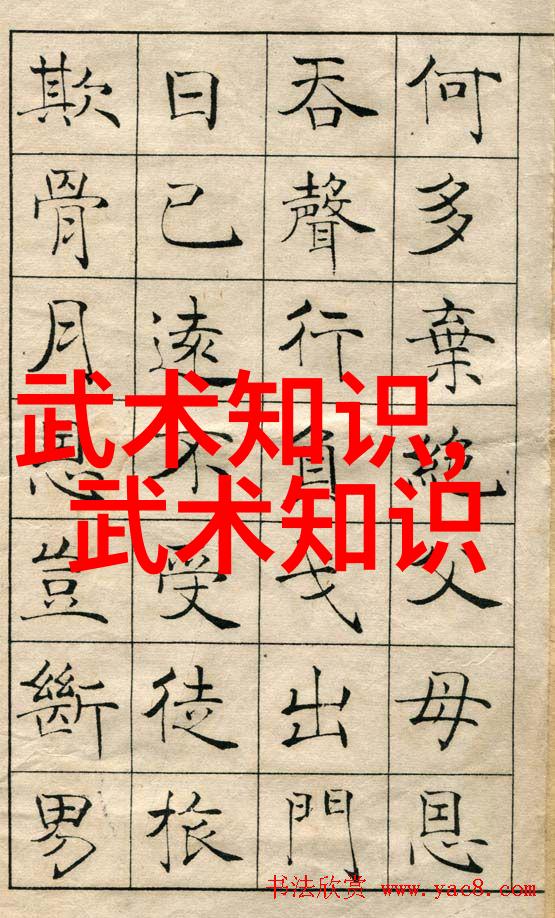 何多棄絕父母恩
吞聲行負戈出門
日已遠不受徒旅
欺骨月恩豈斷男
武术知识,
武术知识
书法欣赏 www.yac8.com